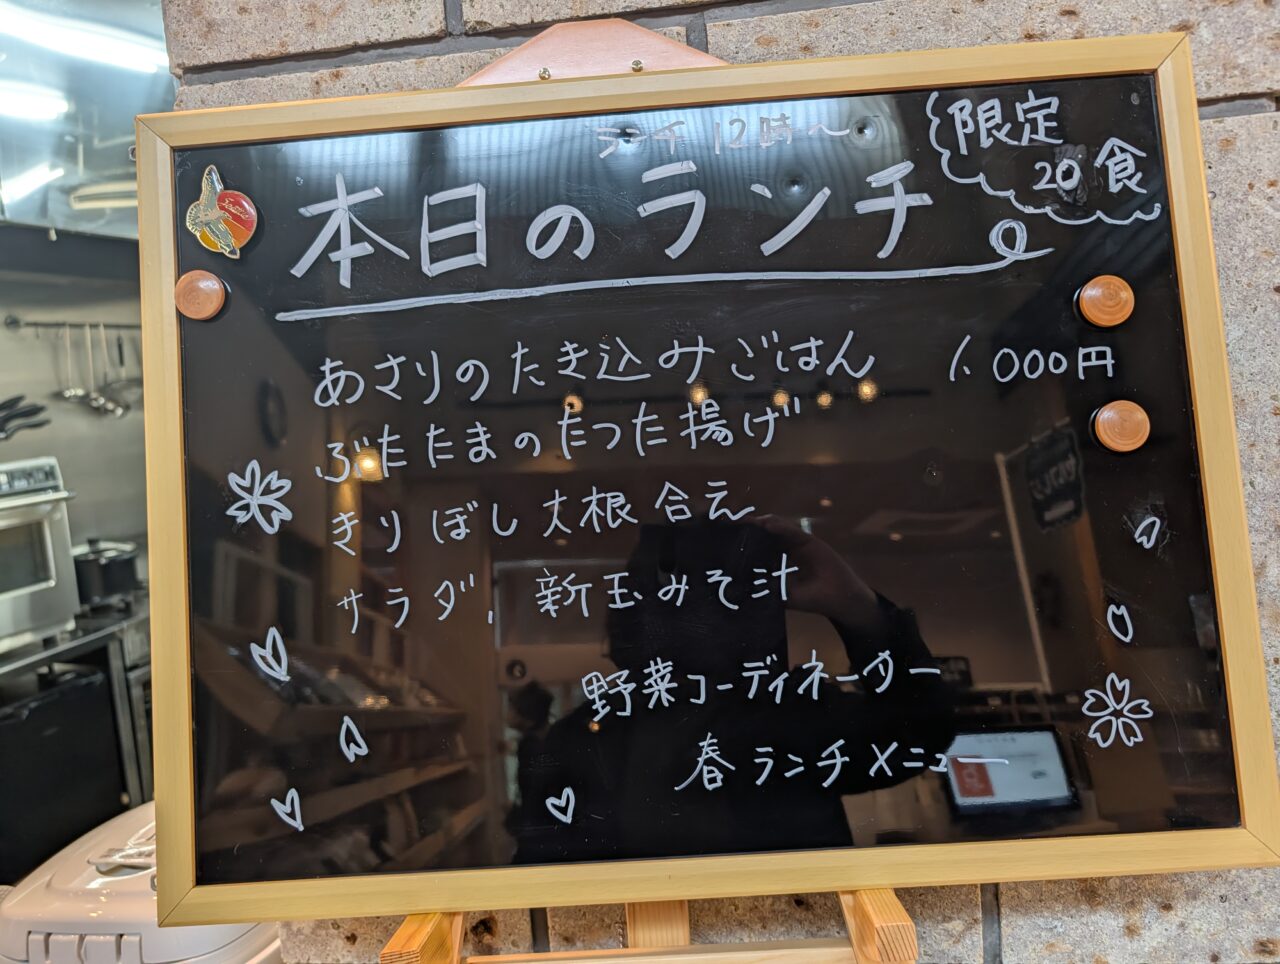 ランチ 12時〜
限定
20食
本日のランチ
あさりのたき込みごはん 1.000円
ぶたたまのたつた揚げ
きりぼし大根合え
サラダ、新玉みそ汁
野菜コーディネーター
春ランチメニュー